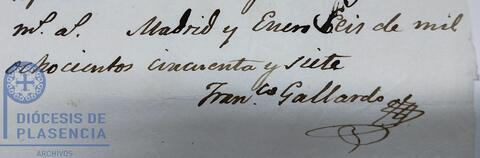 m.s a.s Madrid y Enero Seis de mil
ochocientos cincuenta y siete
Fran.co Gallardo
DIÓCESIS DE
PLASENCIA
ARCHIVOS